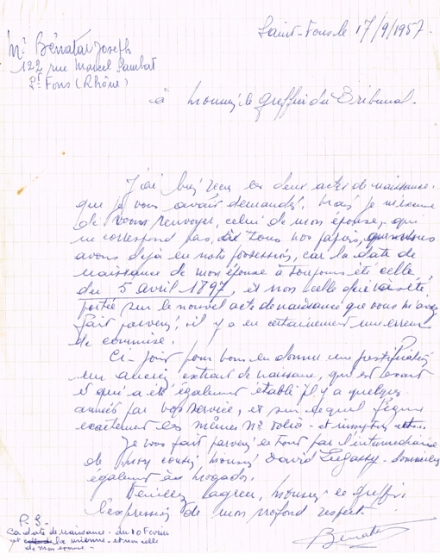 Mr Bénatar Joseph
122 rue Marcel Sembat
St Fons (Rhône)
Saint-Fons le 17/9/1957
à Monsieur le Greffier du Tribunal.
J'ai bien reçu les deux actes de naissance.
que je vous avais demandés. Mais je
de vous renvoyer, celui de mon épouse, qui
ne correspond pas, à tous nos papiers, que nous
avons déjà en notre possession, car la date de
naissance de mon épouse a toujours été celle
du 5 avril 1897, et non celle qui a été
portée sur le nouvel acte de naissance que vous m'avez
fait parvenir, il y a eu certainement une erreur
de commise.
Ci-joint pour vous en donner une justification
un ancien extrait de naissance, qui est
et qui a été également établi il y a quelques
années par vos service, et sur lequel figure
exactement les mêmes Nº folio - et inscription
Je vous fait parvenir le tout par l'intermédiaire
de mon cousin Monsieur David - domicilié
également à Mogador.
Veuillez agréer, Monsieur le Greffier
l'expression de mon profond respect.
Bénatar
P.S.
La date de naissance - du
est la mienne - et non celle
de mon épouse -